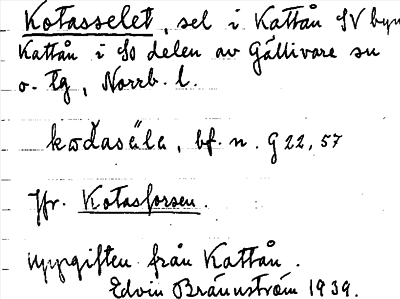 Kotasselet, sel i Kattån SV byn
Kattån i SO delen av Gällivare sn
o. tg, Norrb. l.
kωďasäla, bf. n. G 22, 57
Jfr. Kotasforsen.
uppgiften från Kattån.
Edvin Brännström 1939.